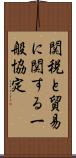 関税と貿易
に関する一
般協定